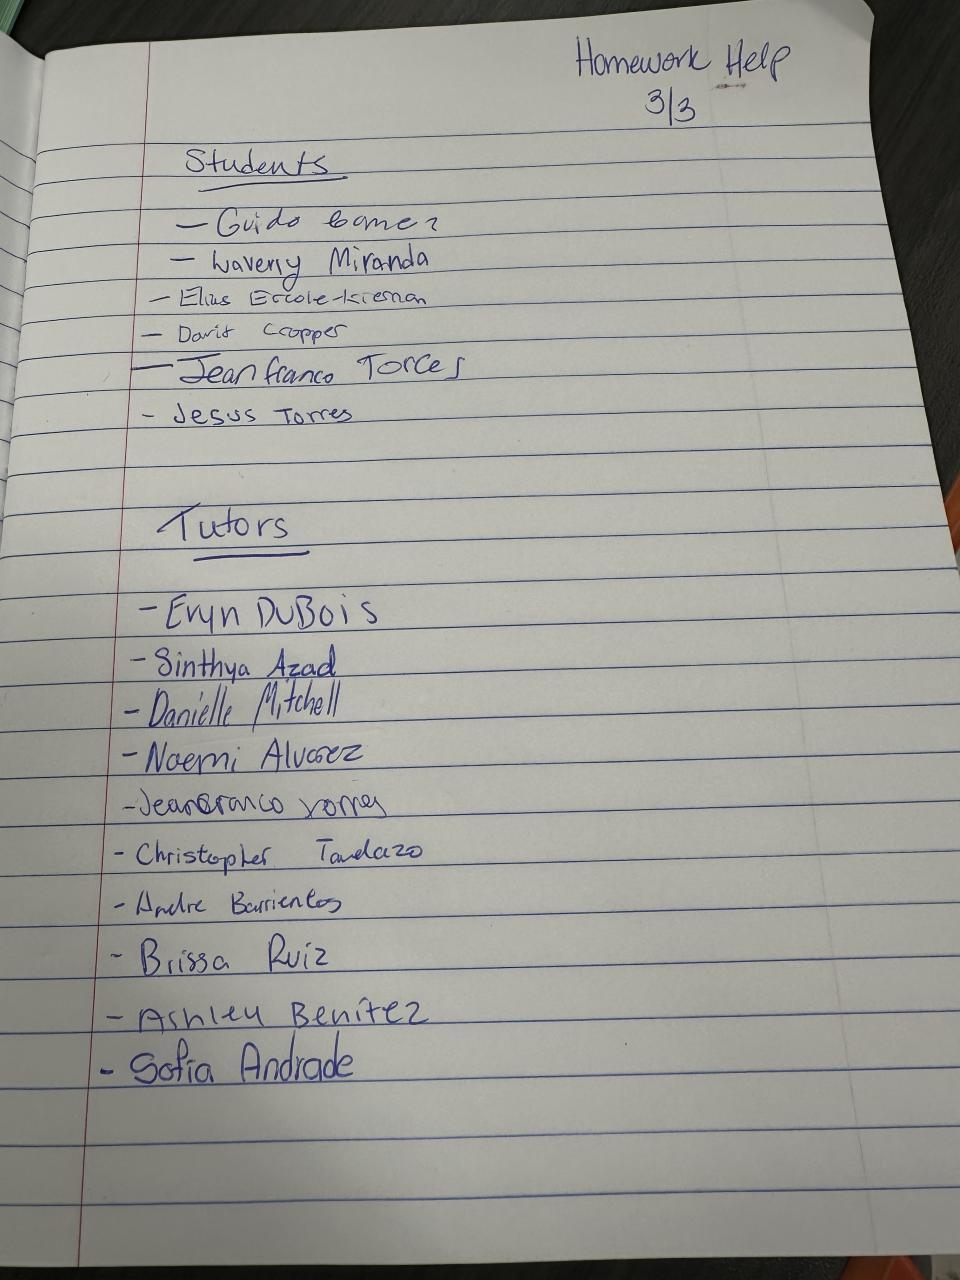 Homework Help
3/3
Students
- Guido Gomez
- Waverly Miranda
- Elias Ercole-Kiernan
- David Cropper
- Jeanfranco Torres
- Jesus Torres
Tutors
- Eryn DuBois
- Sinthya Azad
- Danielle Mitchell
- Noemi Alvarez
- Jeanfranco Torres
- Christopher Tandazo
- Andre Barrientos
- Brissa Ruiz
- Ashley Benitez
- Sofia Andrade